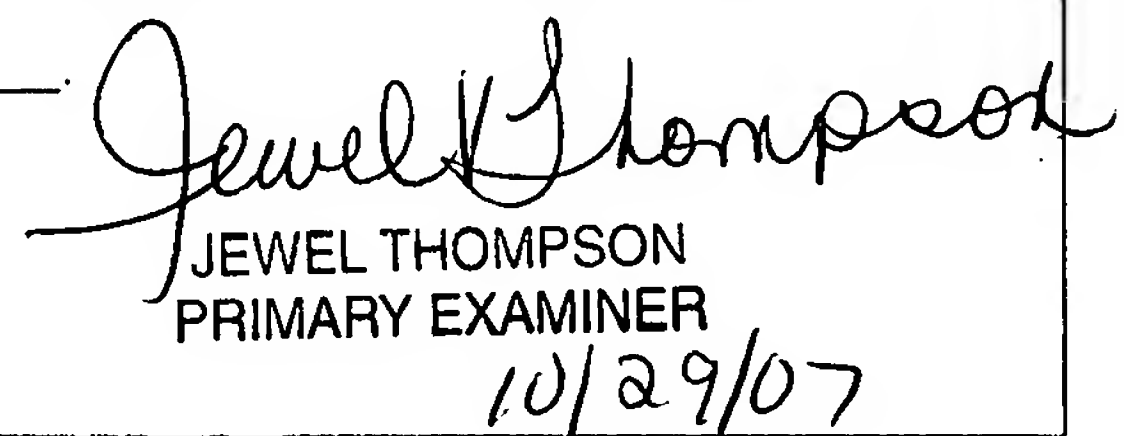 Jewel V Thompson
JEWEL THOMPSON
PRIMARY EXAMINER
10/29/07